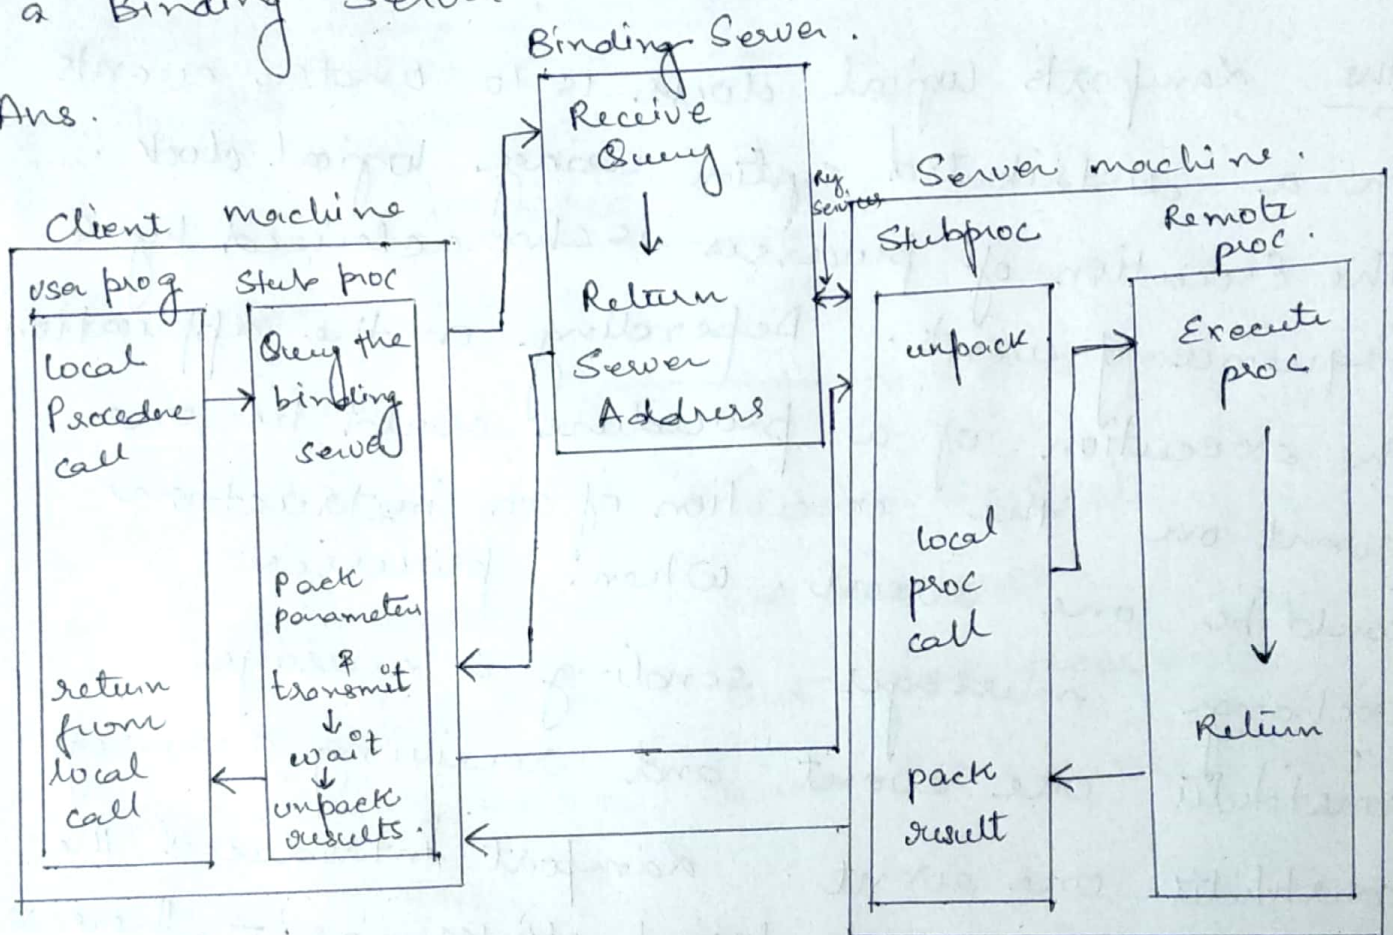 a Binding Server.
Ans.
Binding Server.
Receive
Query
Return
Server
Address
Client machine
User prog
Local
Procedure
call
return
from
local
call
Stub proc
Query the
binding
server
Pack
parameters
&
transmit
wait
unpack
results.
Reg.
Services
Server machine.
Stubproc
unpack
local
proc
call
pack
result
Remote
proc.
Execute
proc
Return